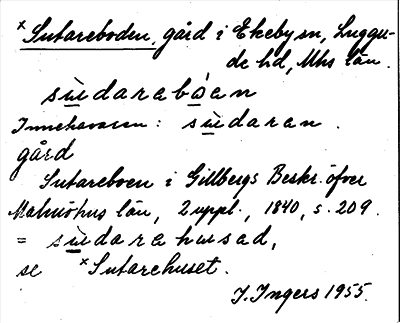 ×Sutareboden, gård i Ekeby sn, Luggu-
de hd, Mhs län.
sùdarabóan
Innehavaren: sùdaran.
gård
Sutareboen i Gillbergs Beskr. öfver
Malmöhus län, 2 uppl., 1840, s. 209.
= sùdarahusad,
se ×Sutarehuset.
J. Ingers 1955.